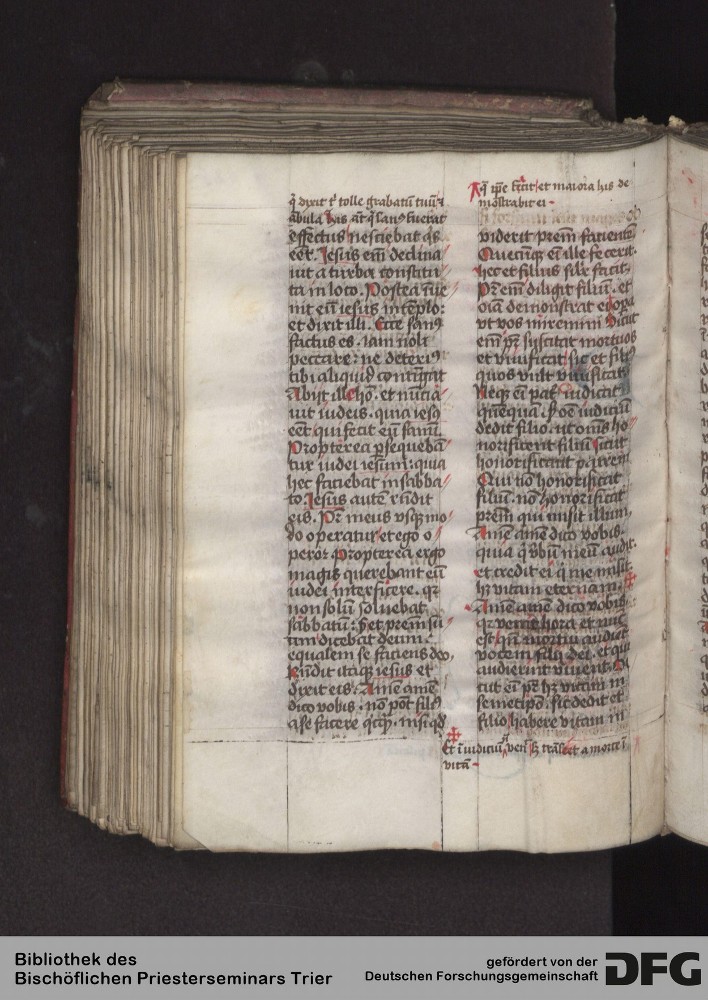 q̓ dixit t' tolle grabatū tuū ⁊
ābula his aūt q̓ sanꝰ fuerat
effectus nesciebat q̓s
eēt. Jesus em̄ declina
uit a turba constitu
ta in loco. Postea īue
nit eū iesus in tēplo:
et dixit illi. Ecce sanꝰ
factus es. iam noli
peccare: ne deteriꝰ
tibi aliquid contīgat
Abijt ille hō. et nūcia
uit iudeis. quia iesꝰ
eēt qui fecit eū sanū.
Propterea ꝑsequebā
tur iudei iesum: quia
hec faciebat in sabba
to. Jesus autē rn̄dit
eis. Pr̄ meus usqꝫ mo
do operatur et ego o
peror. Propterea ergo
magis querebant eū
iudei interficere. qꝛ
non solū soluebat
sabbatū: set prēm su
um dicebat deum:
equalem se faciens deo.
Rn̄dit itaqꝫ iesus et
dixit eis. Amē amē
dico vobis. nō pōt filiꝰ
a se facere qͥcqͣ. nisi qd̓
Aq̓ ip̄e fecit et maiora his de
mōstrabit ei.
viderit prēm facientē
Quecūqꝫ em̄ ille fecerit.
hec et filius sil̄r facit.
Pr̄ em̄ diligit filiū. et
oīa demonstrat ei
vt vos miremini Sicut
em̄ pr̄ suscitat mortuos
et viuificat sic et filiꝰ
quos vult viuificat
Neqꝫ em̄ pat̓ iudicat
quēquā. s̄ oē iudiciū
dedit filio. ut om̄s ho
norificent filiū sicut
honorificant patrem
Qui nō honorificat
filiū. nō honorificat
prēm qui misit illum.
Amē amē dico vobis.
quia q̓ v̓bū meū audit.
et credit ei q̓ me misit.
hꝫ vitam eternam.
Amē amē dico vobis
qꝛ venit hora et nūc
est qn̄ mortui audiēt
vocem filij dei. et qui
audierint viuent. Si
cut em̄ pr̄ hꝫ vitam in
semetipso. sic dedit et
filio habere vitam in
Et ī iudiciū nō ven̄ sꝫ trāsiet a morte ī
vitā.
Bibliothek des
Bischöflichen Priesterseminars Trier
gefördert von der
Deutschen Forschungsgemeinschaft
DFG